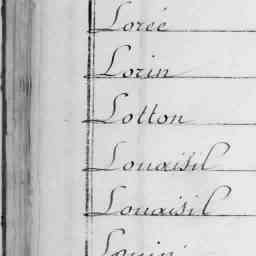 Lorée
Lorin
Lotton
Louaisil
Louaisil